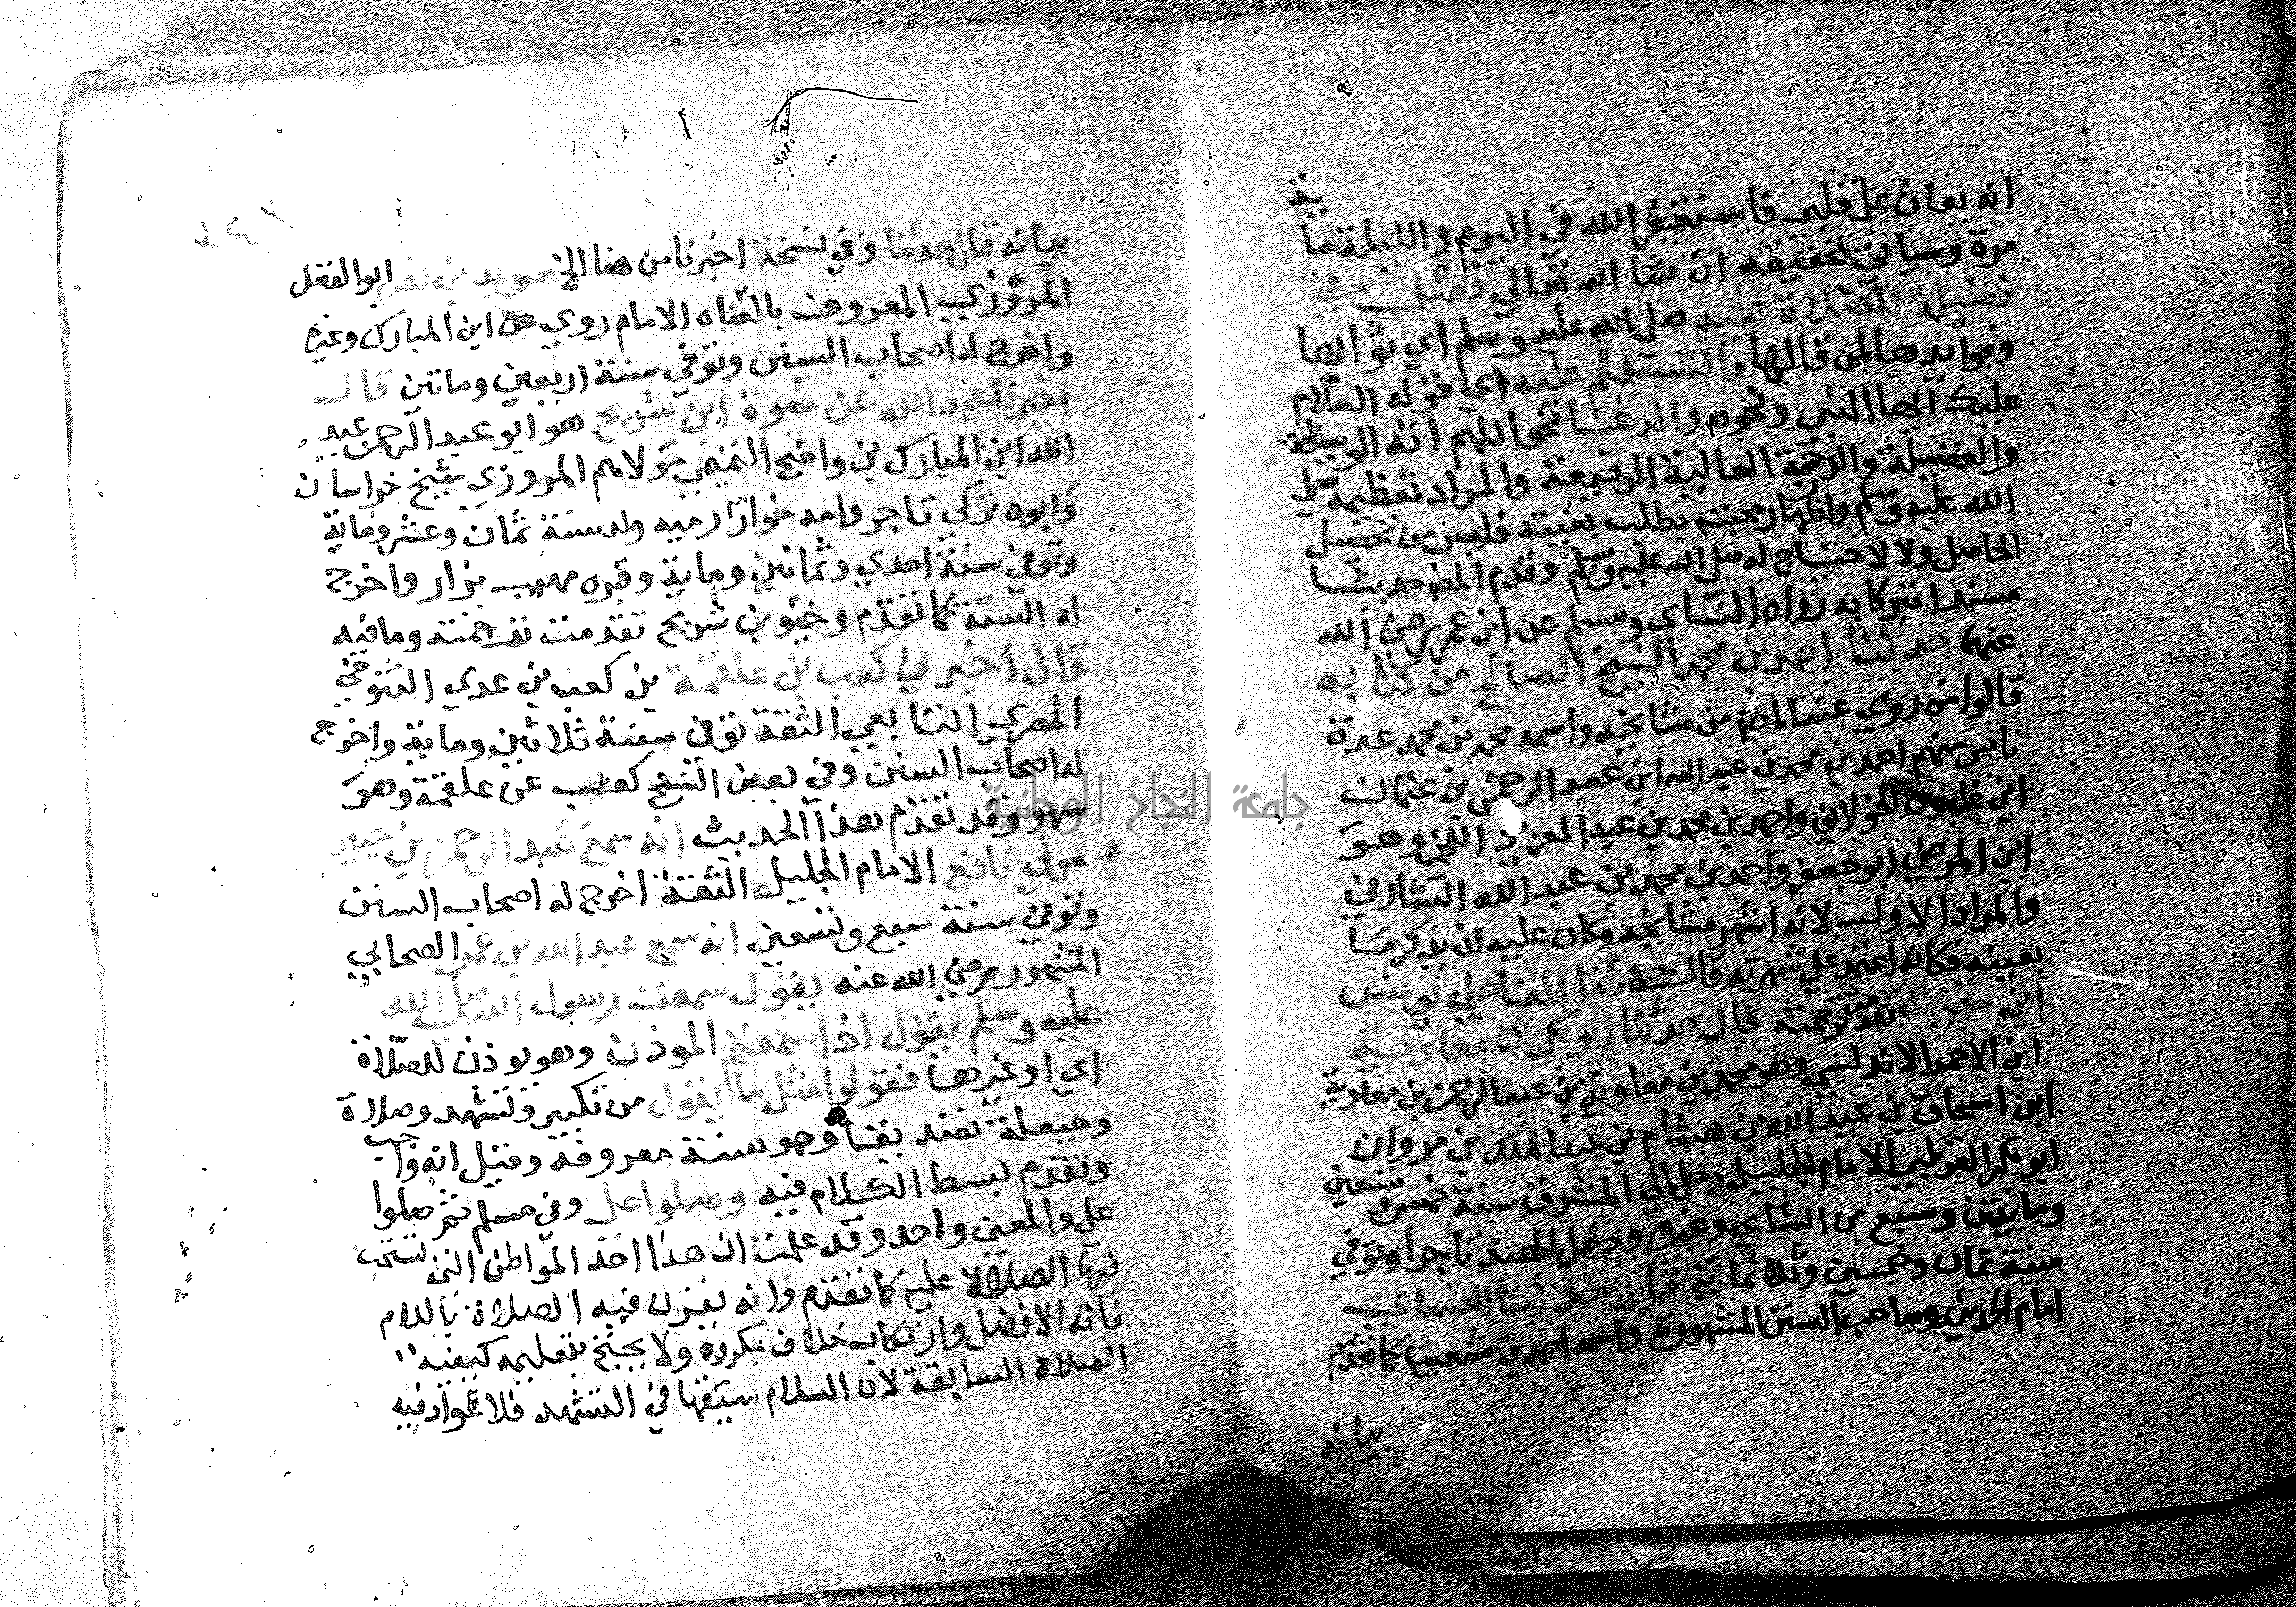 انه يعان على قلبي فاستغفر الله في اليوم والليلة ماية
مرة وسياتي تحقيقه ان شا الله تعالي فصل في
فضيلة الصلاة عليه صلي الله عليه وسلم اي ثوابها
وفوايدها لمن قالها والتسليم عليه اي قوله السلام
عليك ايها النبي ونحوه والدعا نحو اللهم اته الوسيلة
والفضيلة والدرجة العالية الرفيعة والمراد تعظيمه صلي
الله عليه وسلم واظهار محبته بطلب بغيته فليس من تحصيل
الحاصل ولا لاحتياج له صلي الله عليه وسلم وقدم المص حديثا
مسندا تبركا به رواه النساي ومسلم عن ابن عمر رضي الله
عنهما حدثنا احمد بن محمد الشيخ الصالح من كتابه
قالوا من روي عنه المص من مشايخه واسمه محمد بن محمد عدة
ناس منهم احمد بن محمد بن عبد الله ابن عبد الرحمن بن عثمان
ابن غلبون الخولاني واحمد بن محمد بن عبد العزيز اللخمي وهو
ابن المرخي ابو جعفر واحمد بن محمد بن عبد الله الشارفي
والمراد الاول لانه اشهر مشايخه وكان عليه ان يذكر ما
يعينه فكانه اعتمد علي شهرته قال حدثنا القاضي يونس
ابن مغيث تقدمت ترجمته قال حدثنا ابو بكر بن معاوية
ابن الاحمر الاندلسي وهو محمد بن معاوية بن عبد الرحمن بن معاوية
ابن اسحاق بن عبد الله بن هشام بن عبد الملك بن مروان
ابو بكر القرطبي الامام الجليل رحل الي المشرق سنة خمس وتسعين
وماتين وسمع من النساي وغيره ودخل الهند تاجرا وتوفي
سنة ثمان وخمسين وثلاثماية قال حدثنا النساي
امام الحديث وصاحب السنن المشهورة واسمه احمد بن شعيب كما تقدم
بيانه
بيانه قال حدثنا وفي نسخة اخبرنا من هنا الخ سويد بن نصر ابو الفضل
المروزي المعروف بالشاه الامام روي عن ابن المبارك وغيره
واخرج له اصحاب السنن وتوفي سنة اربعين وماتين قال
اخبرنا عبد الله عن حيوة ابن شريح هو ابو عبد الرحمن عبد
الله ابن المبارك بن واضح التميمي مولاهم المروزي شيخ خراسان
وابوه تركي تاجر وامه خوارزميه ولد سنة ثمان وعشر وماية
وتوفي سنة احدي وثمانين وماية وقبره بهيت يزار واخرج
له الستة كما تقدم وحيوة بن شريح تقدمت ترجمته وما فيه
قال اخبرني كعب بن علقمة بن كعب بن عدي التنوخي
المصري التابعي الثقة توفي سنة ثلاثين وماية واخرج
له اصحاب السنن وفي بعض النسخ كعب عن علقمة وهو
سهو وقد تقدم هذا الحديث انه سمع عبد الرحمن بن جبير
مولي نافع الامام الجليل الثقة اخرج له اصحاب السنن
وتوفي سنة سبع وتسعين انه سمع عبد الله بن عمرو الصحابي
المشهور رضي الله عنه يقول سمعت رسول الله صلي الله
عليه وسلم يقول اذا سمعتم الموذن وهو يوذن للصلاة
اي او غيرها فقولوا مثل ما يقول من تكبير وتشهد وصلاة
وحيعلة وهو سنة معروفة وقيل انه واجب
وتقدم بسط الكلام فيه وصلوا علي وفي مسلم ثم صلوا
علي والمعني واحد وقد علمت ان هذا احد المواطن التي تستحب
فيها الصلاة عليه كما تقدم وانه يقرن فيه الصلاة بالسلام
فانه الافضل وارتكاب خلاف مكروه ولا يحتج بتعليمه كيفية
الصلاة السابقة لان السلام سبقها في التشهد فلا افراد فيه
جامعة النجاح الوطنية